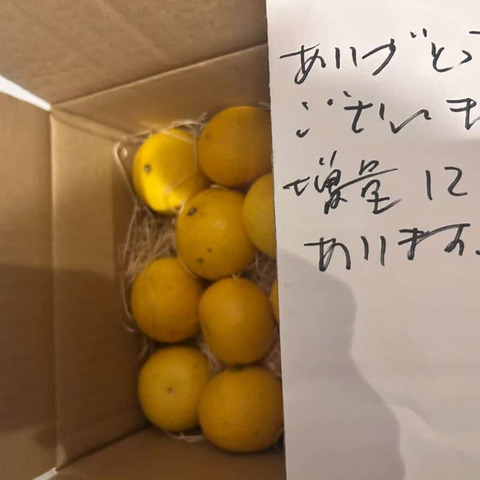 ありがとう
ございま
増量に
あります。